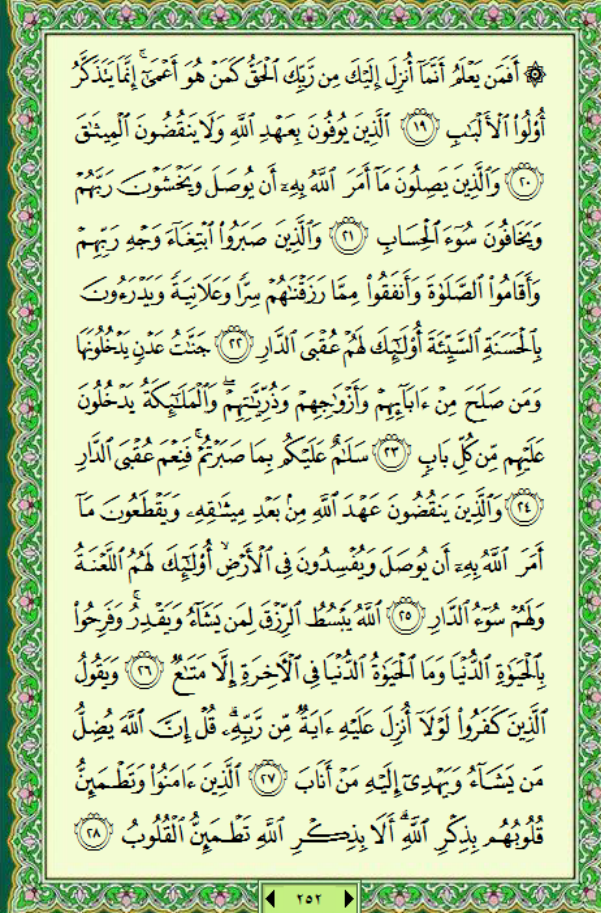 ۞ أَفَمَن يَعْلَمُ أَنَّمَآ أُنزِلَ إِلَيْكَ مِن رَّبِّكَ ٱلْحَقُّ كَمَنْ هُوَ أَعْمَىٰٓ ۚ إِنَّمَا يَتَذَكَّرُ
أُو۟لُوا۟ ٱلْأَلْبَٰبِ ﴿١٩﴾ ٱلَّذِينَ يُوفُونَ بِعَهْدِ ٱللَّهِ وَلَا يَنقُضُونَ ٱلْمِيثَٰقَ
﴿٢٠﴾ وَٱلَّذِينَ يَصِلُونَ مَآ أَمَرَ ٱللَّهُ بِهِۦٓ أَن يُوصَلَ وَيَخْشَوْنَ رَبَّهُمْ
وَيَخَافُونَ سُوٓءَ ٱلْحِسَابِ ﴿٢١﴾ وَٱلَّذِينَ صَبَرُوا۟ ٱبْتِغَآءَ وَجْهِ رَبِّهِمْ
وَأَقَامُوا۟ ٱلصَّلَوٰةَ وَأَنفَقُوا۟ مِمَّا رَزَقْنَٰهُمْ سِرًّا وَعَلَانِيَةً وَيَدْرَءُونَ
بِٱلْحَسَنَةِ ٱلسَّيِّئَةَ أُو۟لَٰٓئِكَ لَهُمْ عُقْبَى ٱلدَّارِ ﴿٢٢﴾ جَنَّٰتُ عَدْنٍ يَدْخُلُونَهَا
وَمَن صَلَحَ مِنْ ءَابَآئِهِمْ وَأَزْوَٰجِهِمْ وَذُرِّيَّٰتِهِمْ ۖ وَٱلْمَلَٰٓئِكَةُ يَدْخُلُونَ
عَلَيْهِم مِّن كُلِّ بَابٍ ﴿٢٣﴾ سَلَٰمٌ عَلَيْكُم بِمَا صَبَرْتُمْ ۚ فَنِعْمَ عُقْبَى ٱلدَّارِ
﴿٢٤﴾ وَٱلَّذِينَ يَنقُضُونَ عَهْدَ ٱللَّهِ مِنۢ بَعْدِ مِيثَٰقِهِۦ وَيَقْطَعُونَ مَآ
أَمَرَ ٱللَّهُ بِهِۦٓ أَن يُوصَلَ وَيُفْسِدُونَ فِى ٱلْأَرْضِ ۙ أُو۟لَٰٓئِكَ لَهُمُ ٱللَّعْنَةُ
وَلَهُمْ سُوٓءُ ٱلدَّارِ ﴿٢٥﴾ ٱللَّهُ يَبْسُطُ ٱلرِّزْقَ لِمَن يَشَآءُ وَيَقْدِرُ ۚ وَفَرِحُوا۟
بِٱلْحَيَوٰةِ ٱلدُّنْيَا وَمَا ٱلْحَيَوٰةُ ٱلدُّنْيَا فِى ٱلْءَاخِرَةِ إِلَّا مَتَٰعٌ ﴿٢٦﴾ وَيَقُولُ
ٱلَّذِينَ كَفَرُوا۟ لَوْلَآ أُنزِلَ عَلَيْهِ ءَايَةٌ مِّن رَّبِّهِۦ ۗ قُلْ إِنَّ ٱللَّهَ يُضِلُّ
مَن يَشَآءُ وَيَهْدِىٓ إِلَيْهِ مَنْ أَنَابَ ﴿٢٧﴾ ٱلَّذِينَ ءَامَنُوا۟ وَتَطْمَئِنُّ
قُلُوبُهُم بِذِكْرِ ٱللَّهِ ۗ أَلَا بِذِكْرِ ٱللَّهِ تَطْمَئِنُّ ٱلْقُلُوبُ ﴿٢٨﴾
٢٥٢